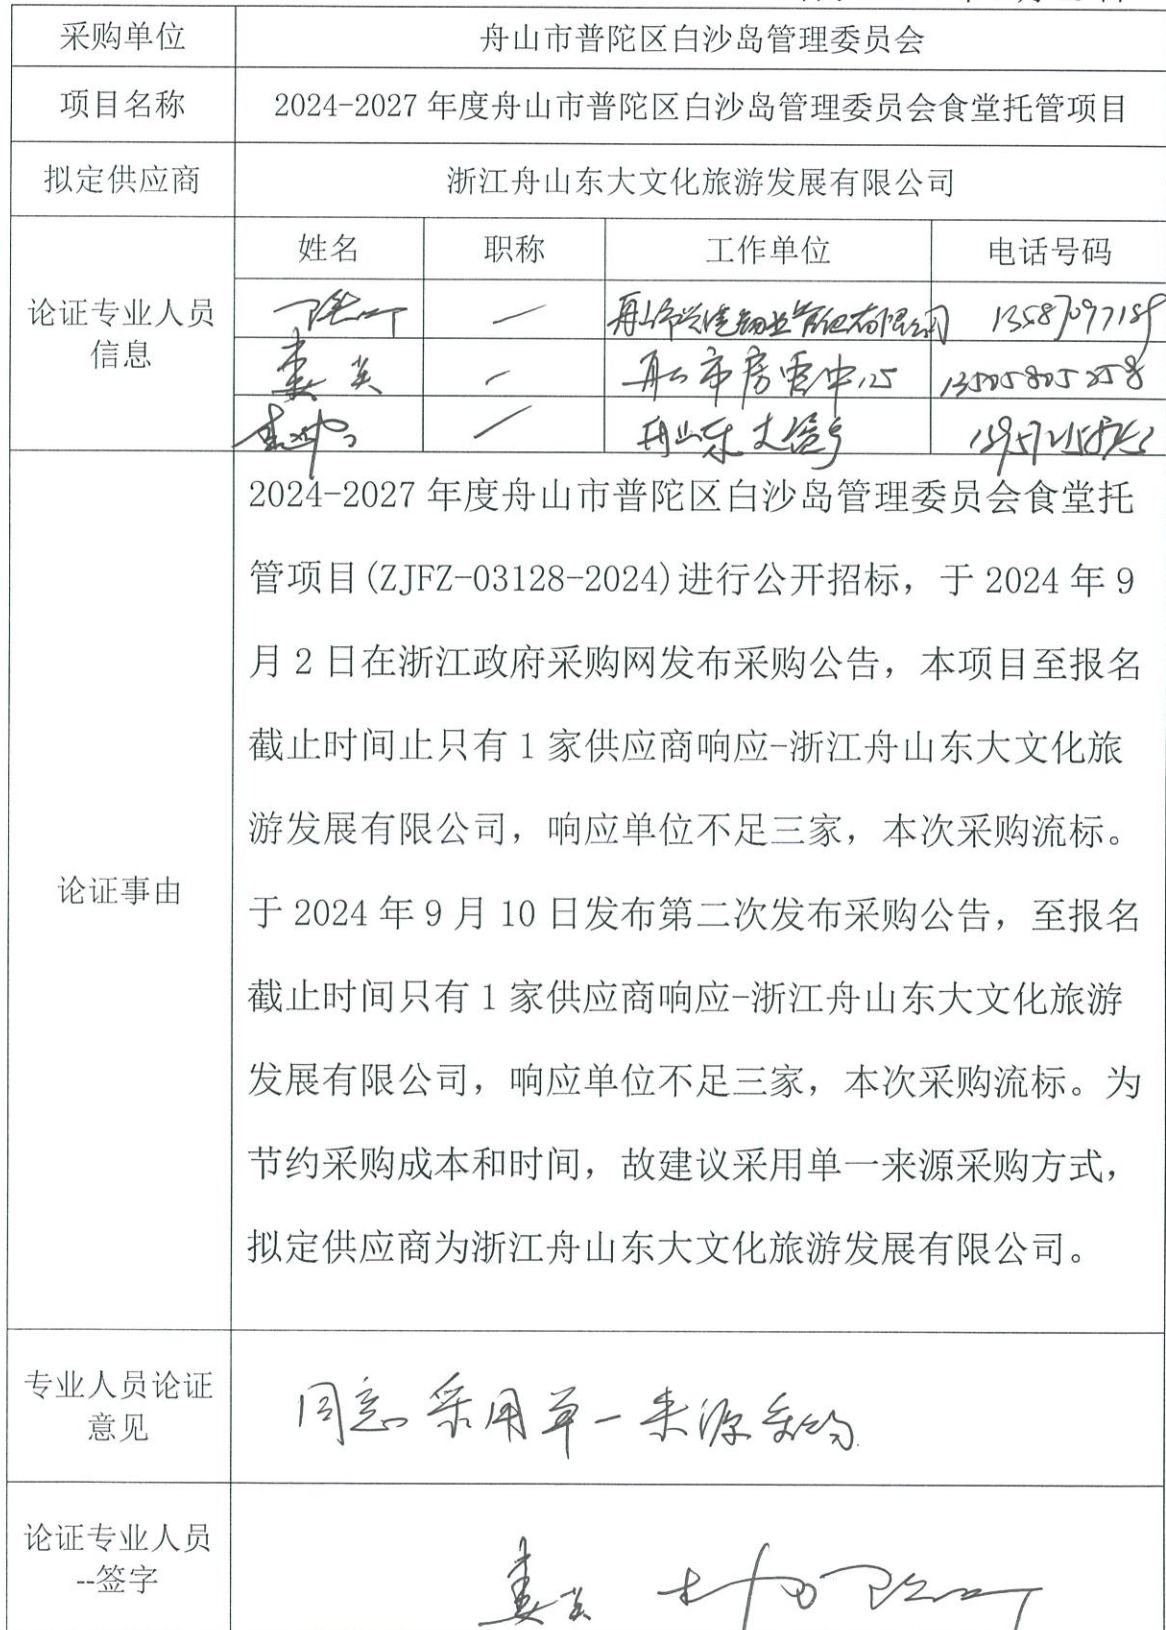 采购单位 舟山市普陀区白沙岛管理委员会
项目名称 2024-2027年度舟山市普陀区白沙岛管理委员会食堂托管项目
拟定供应商 浙江舟山东大文化旅游发展有限公司
论证专业人员
信息
姓名 职称 工作单位 电话号码
一 有限公司 13587097189
娄 一 舟山市房管中心 13505805258
舟山东
论证事由
2024-2027年度舟山市普陀区白沙岛管理委员会食堂托
管项目(ZJFZ-03128-2024)进行公开招标，于2024年9
月2日在浙江政府采购网发布采购公告，本项目至报名
截止时间止只有1家供应商响应-浙江舟山东大文化旅
游发展有限公司，响应单位不足三家，本次采购流标。
于2024年9月10日发布第二次发布采购公告，至报名
截止时间只有1家供应商响应-浙江舟山东大文化旅游
发展有限公司，响应单位不足三家，本次采购流标。为
节约采购成本和时间，故建议采用单一来源采购方式，
拟定供应商为浙江舟山东大文化旅游发展有限公司。
专业人员论证
意见
同意采用单一来源采购
论证专业人员
--签字
娄